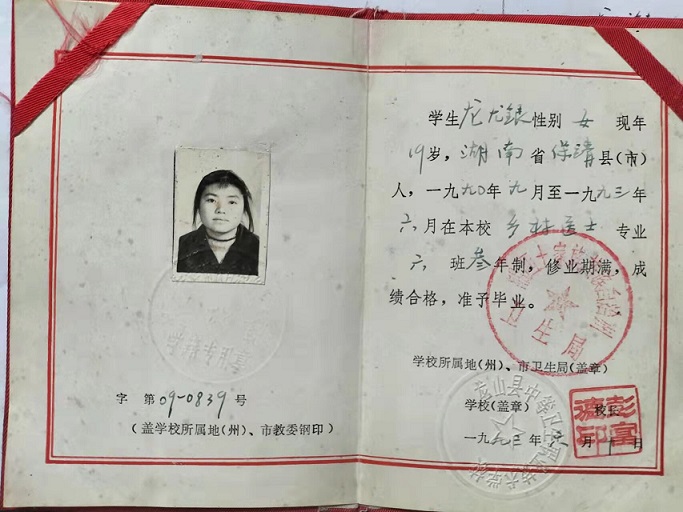 字 第09-0839号
(盖学校所属地(州)、市教委钢印)
学生龙尤銀性别 女 现年
19岁，湖南省保靖县(市)
人，一九九〇年九月至一九九三年
六月在本校 乡村医士 专业
六 班叁年制，修业期满，成
绩合格，准予毕业。
卫生局
学校所属地(州)、市卫生局(盖章)
学校(盖章)
校长
彭富
印
一九九三年 月 日
龙山县中等卫生
学校